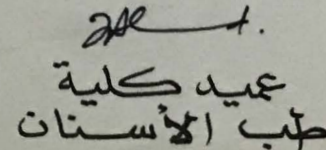 عميد كلية
طب الأسنان